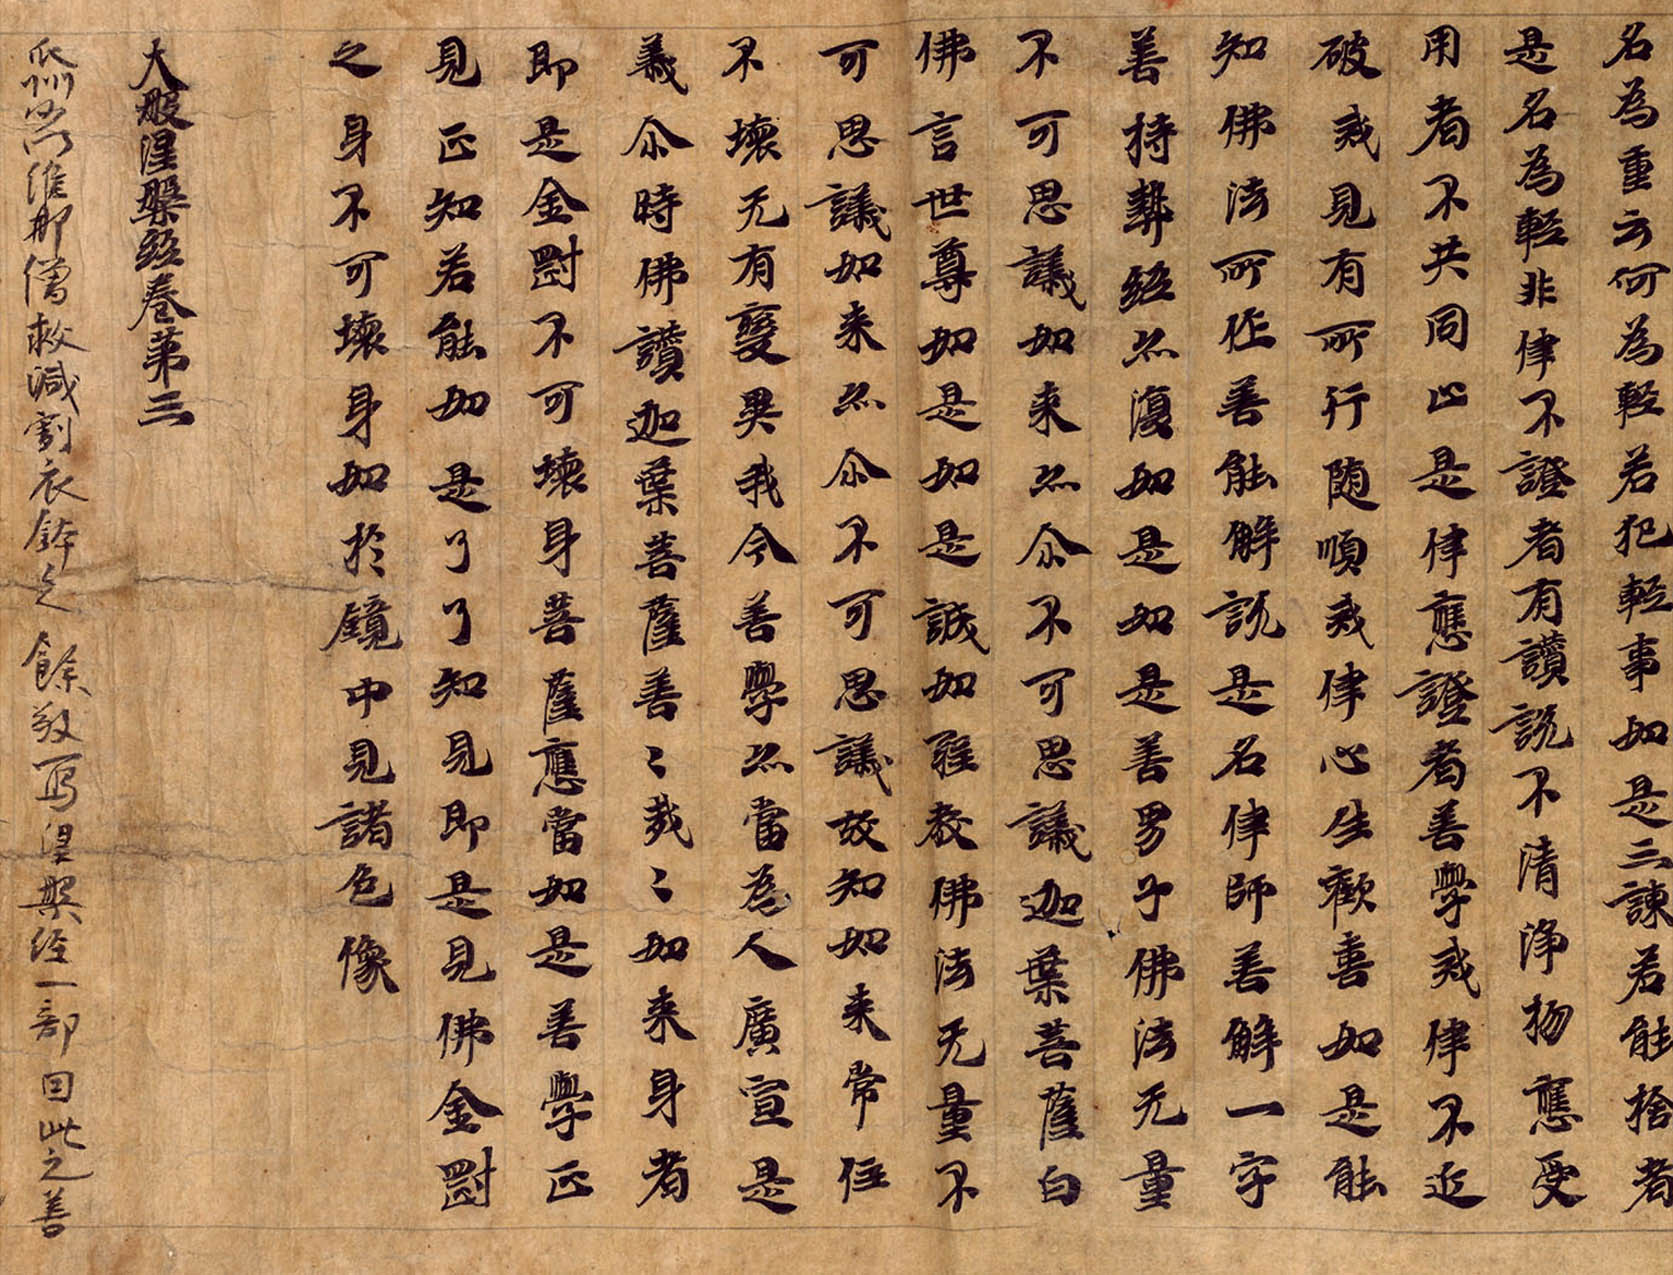 名為重云何為輕若犯輕事如是三諫若能捨者
是名為輕非律不證者有讚說不清淨物應受
用者不共同止是律應證者善學戒律不近
破戒見有所行随順戒律心生歡喜如是能
知佛法所作善能解說是名律師善解一字
善持契經亦復如是如是善男子佛法无量
不可思議如来亦尒不可思議迦葉菩薩白
佛言世尊如是如是誠如聖教佛法无量不
可思議如来亦尒不可思議故知如来常住
不壞无有變異我今善學亦當為人廣宣是
義尒時佛讚迦葉菩薩善〻哉〻如来身者
即是金剛不可壞身菩薩應當如是善學正
見正知若能如是了了知見即是見佛金剛
之身不可壞身如於鏡中見諸色像
大般涅槃經卷第三
瓜州 維那僧救減割衣鉢之餘敬寫涅槃經一部因此之善